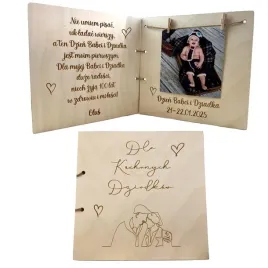 Nie umiem pisać,
układać wierszy,
a Ten Dzień Babci i Dziadka
jest moim pierwszym.
Dla mojej Babci i Dziadka
dużo radości,
niech żyją 100 LAT
w zdrowiu i miłości!
Oluś
Dzień Babci i Dziadka
21-22.01.2025
Dla
Kochanych
Dziadków